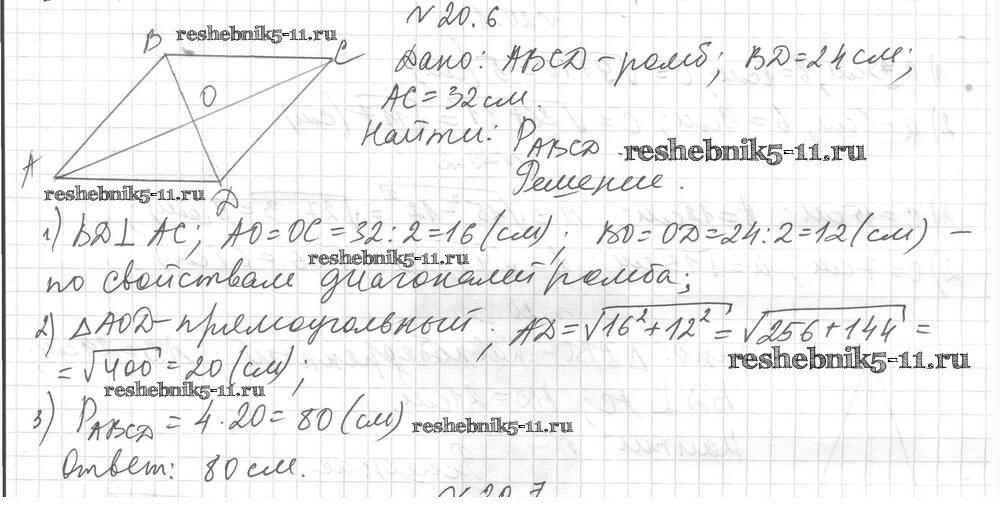 N 20.6
B reshebnik5-11.ru C
Дано: ABCD - ромб; BD = 24 см;
O
AC = 32 см.
Найти: P ABCD. reshebnik5-11.ru
A
Решение.
reshebnik5-11.ru
D
1) BD ⊥ AC; AO = OC = 32 : 2 = 16 (см); BO = OD = 24 : 2 = 12 (см) –
reshebnik5-11.ru
по свойствам диагоналей ромба;
2) △AOD - прямоугольный; AD = √16² + 12² = √256 + 144 =
reshebnik5-11.ru
= √400 = 20 (см);
reshebnik5-11.ru
3) P ABCD = 4 · 20 = 80 (см) reshebnik5-11.ru
Ответ: 80 см.
N 20.7